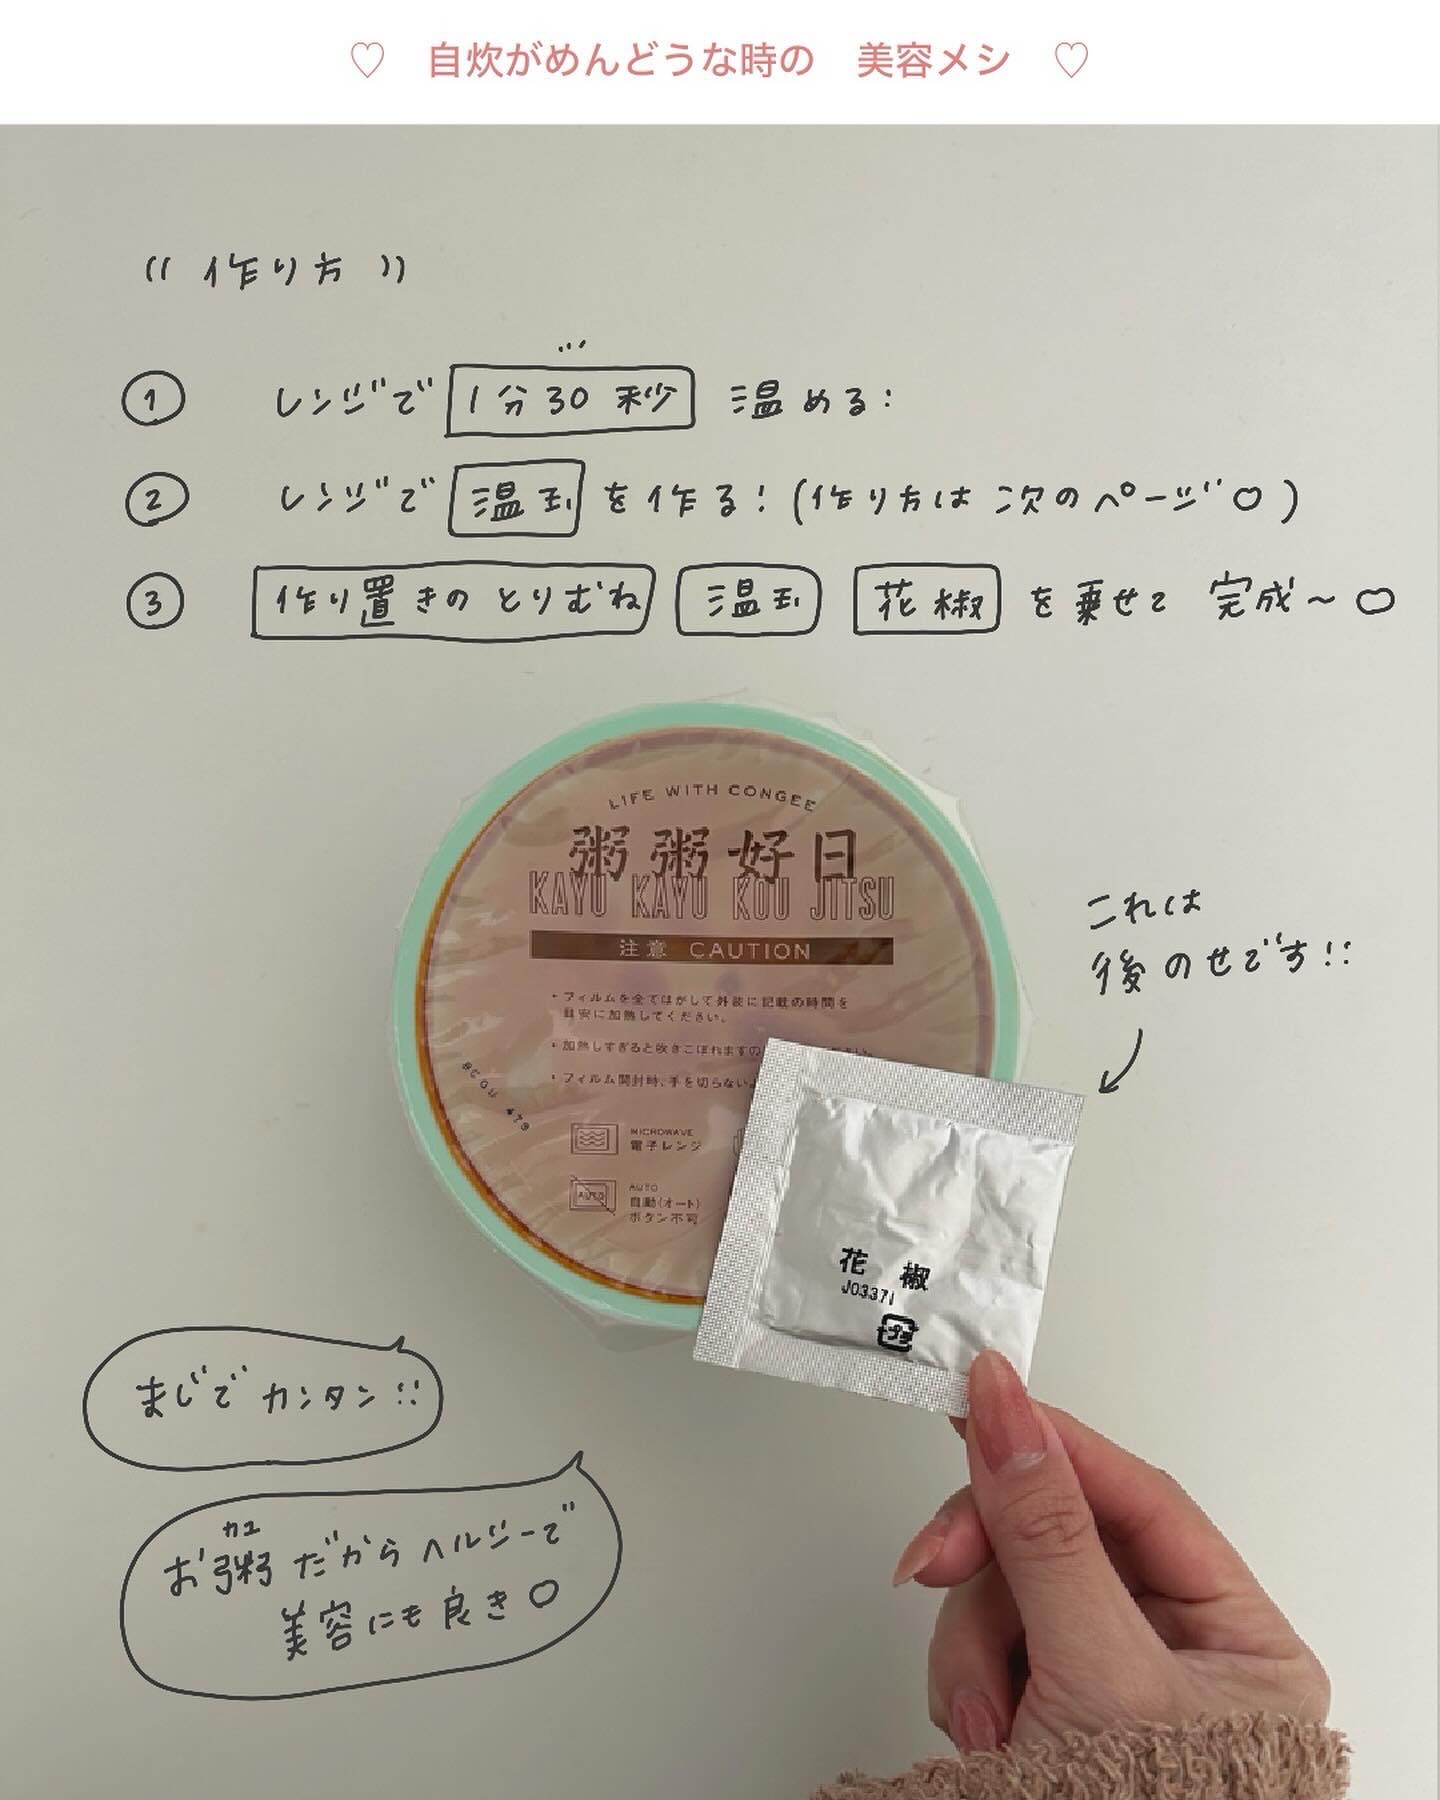 ♡ 自炊がめんどうな時の 美容メシ ♡
(( 作り方 ))
① レンジで 1分30秒 温める!
② レンジで 温玉 を作る! (作り方は 次のページ♡)
③ 作り置きの とりむね 温玉 花椒 を乗せて 完成〜♡
LIFE WITH CONGEE
粥粥好日
KAYU KAYU KOU JITSU
注意 CAUTION
・フィルムを全てはがして外装に記載の時間を
目安に加熱してください。
・加熱しすぎると吹きこぼれますの
・フィルム開封時、手を切らない
MICROWAVE
電子レンジ
AUTO
AUTO
自動(オート)
ボタン不可
これは
後のせです!!
花椒
J03371
プラ
まじで カンタン!!
カユ
お粥だから ヘルシーで
美容にも良き♡